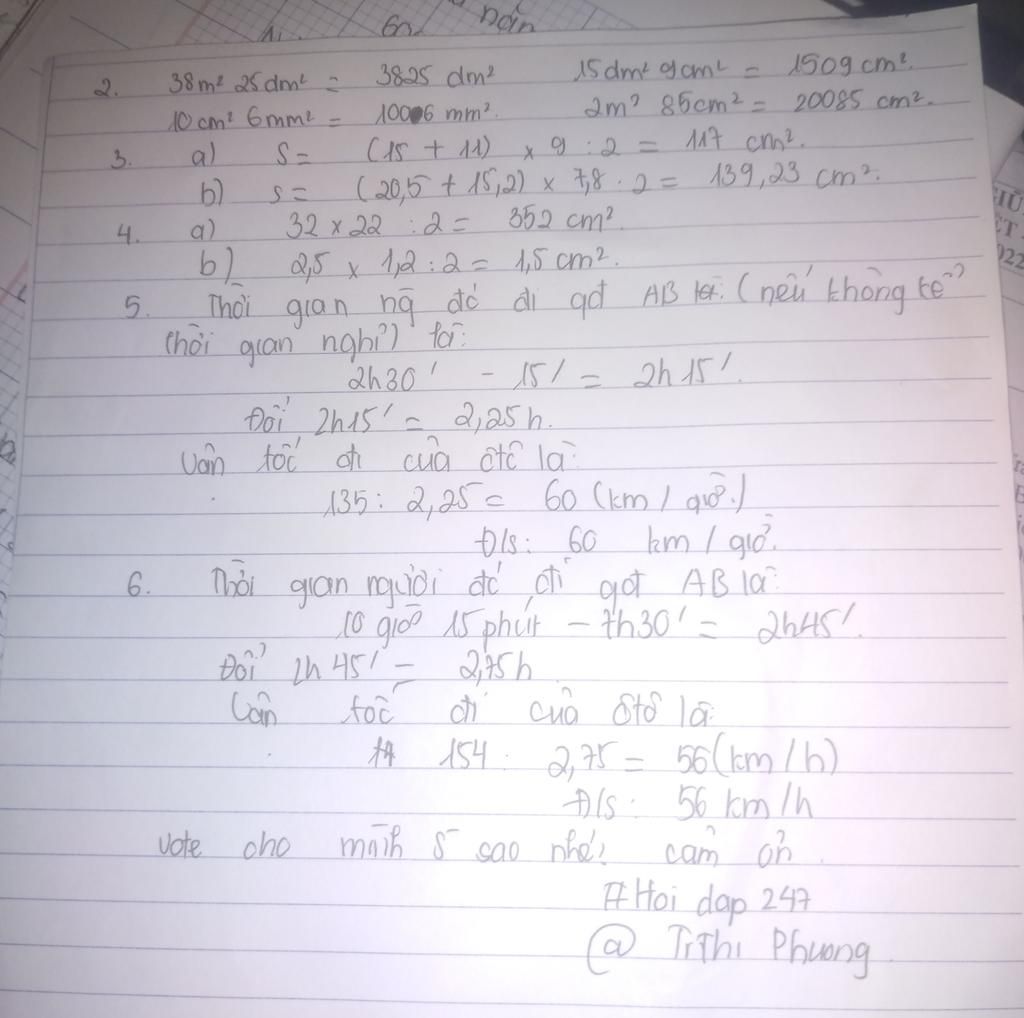 Bán
2. 38m² 25dm² = 3825 dm² 15dm² 9cm² = 1509 cm².
10cm² 6mm² = 1006 mm². 2m² 85cm² = 20085 cm².
3. a) S = (15 + 11) x 9 : 2 = 117 cm².
b) S = (20,5 + 15,2) x 7,8 : 2 = 139,23 cm².
4. a) 32 x 22 : 2 = 352 cm².
b) 2,5 x 1,2 : 2 = 1,5 cm².
5. Thời gian ng đó đi qđ AB (nếu không kể
thời gian nghỉ) là:
2h30' - 15' = 2h15'.
Đổi 2h15' = 2,25h.
Vận tốc đi của ôtô là:
135 : 2,25 = 60 (km / giờ.)
Đ/s: 60 km / giờ.
6. Thời gian người đó đi qđ AB là:
10 giờ 15 phút - 7h30' = 2h45'.
Đổi 2h45' = 2,75h
Vận tốc đi của ôtô là:
154 : 2,75 = 56 (km / h)
Đ/s: 56 km / h
vote cho mình 5 sao nhé! cảm ơn
#Hoi dap 247
@ TrThi Phuong